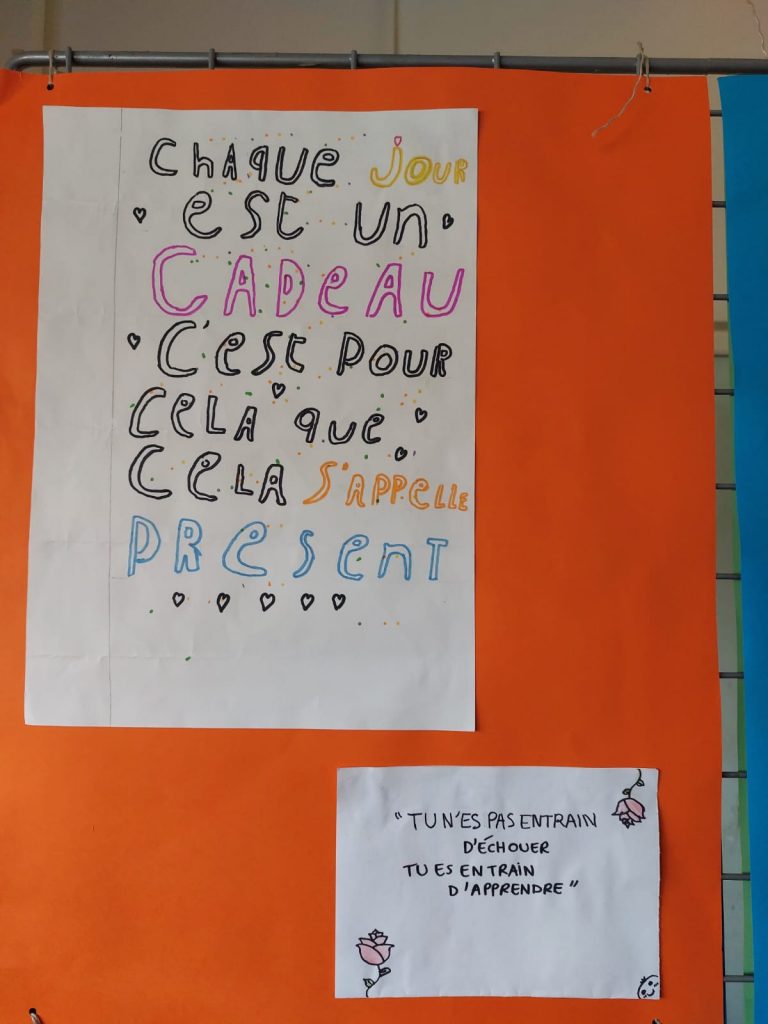 Chaque jour
est un
CADEAU
C'est pour
cela que
cela s'appelle
PRESENT
"TU N'ES PAS ENTRAIN
D'ÉCHOUER
TU ES EN TRAIN
D'APPRENDRE"